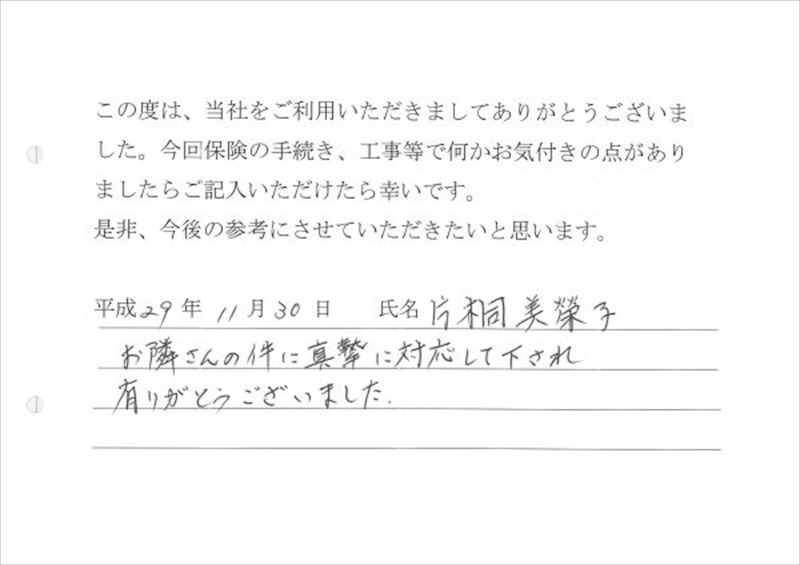 この度は、当社をご利用いただきましてありがとうございま
した。今回保険の手続き、工事等で何かお気付きの点があり
ましたらご記入いただけたら幸いです。
是非、今後の参考にさせていただきたいと思います。
平成29年 11月30日 氏名 片桐美榮子
お隣さんの件に真摯に対応して下され
有りがとうございました.